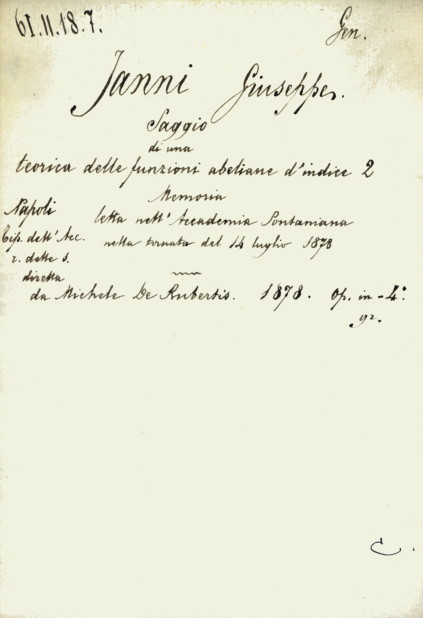 61.II.18.7.
Gen.
Janni Giuseppe.
Saggio
di una
teorica delle funzioni abeliane d'indice 2
Memoria
letta nell'Accademia Pontaniana
nella tornata del 14 luglio 1878
Napoli
Tip. dell'Acc.
r. delle s.
diretta
da Michele De Rubertis. 1878. Op. in-4.°
gr.
C.